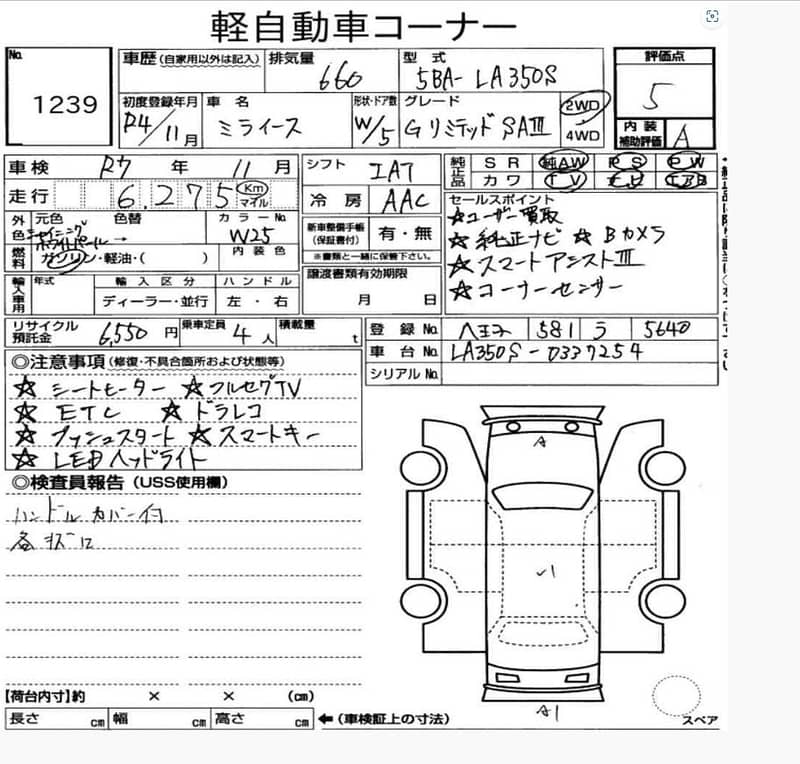 軽自動車コーナー
No. 1239
車歴(自家用以外は記入) 排気量 660 型式 5BA-LA350S 評価点 5
初度登録年月 R4/11月 車名 ミライース 形状・ドア数 W/5 グレード Gリミテッド SAⅢ 2WD 4WD 内装補助評価 A
車検 R7年 11月 シフト IAT 純正品 SR 純AW PS PW
走行 6,275 Km マイル 冷房 AAC カワ TV ナビ エアB
外色 元色 シャイニングホワイトパール 色替 → カラーNo. W25 内装色
新車整備手帳(保証書付) 有・無
※書類と一緒に保管下さい。
セールスポイント
☆ユーザー買取
☆純正ナビ ☆Bカメラ
☆スマートアシストⅢ
☆コーナーセンサー
燃料 ガソリン・軽油・( )
輸入車用 年式 輸入区分 ディーラー・並行 ハンドル 左・右
譲渡書類有効期限 月 日
リサイクル預託金 6,550円 乗車定員 4人 積載量 t
登録No. 八王子 581 う 5640
車台No. LA350S-0337254
シリアルNo.
◎注意事項(修復・不具合箇所および状態等)
☆シートヒーター ☆フルセグTV
☆ETC ☆ドラレコ
☆プッシュスタート ☆スマートキー
☆LEDヘッドライト
◎検査員報告(USS使用欄)
ハンドルカバー付
各キズ
A
✓1
A1
【荷台内寸】約 × × (cm)
長さ cm 幅 cm 高さ cm ←(車検証上の寸法)
スペア